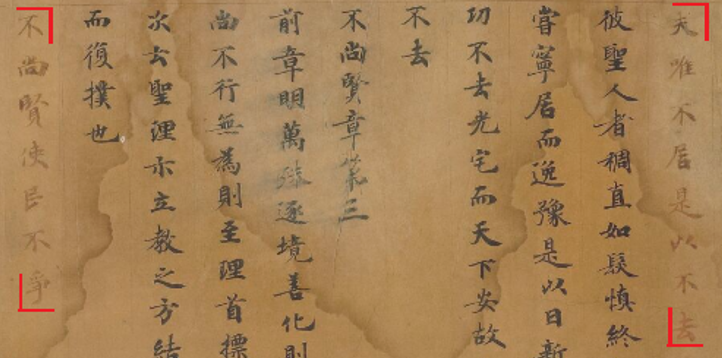 夫唯不居是以不去
彼聖人者稠直如髮慎終
嘗寧居而逸豫是以日新
功不去光宅而天下安故
不去
不尚賢章第三
前章明萬殊逐境善化則
尚不行無為則至理首標
次云聖理示立教之方結
而復撲也
不尚賢使民不爭